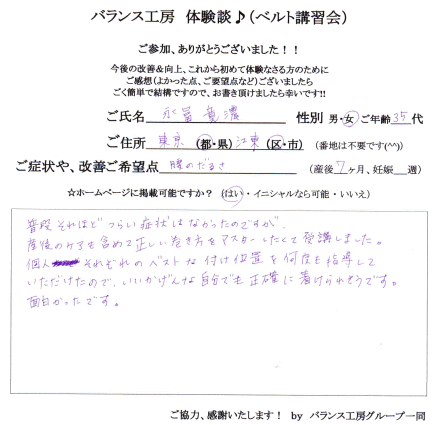 バランス工房 体験談♪(ベルト講習会)
ご参加、ありがとうございました!!
今後の改善&向上、これから初めて体験なさる方のために
ご感想(よかった点、ご要望点など)ございましたら
ごく簡単で結構ですので、お書き頂けましたら幸いです!!
ご氏名 永冨 性別 男・女 ご年齢 35 代
ご住所 東京 (都・県) 江東 (区・市) (番地は不要です(^^))
ご症状や、改善ご希望点 腰のだるさ (産後 7 ヶ月、妊娠 週)
☆ホームページに掲載可能ですか? (はい・イニシャルなら可能・いいえ)
普段それほどつらい症状はなかったのですが、
産後のケアも含めて正しい巻き方をマスターしたくて受講しました。
個人それぞれのベストな付け位置を何度も指導して
いただけたので、いいかげんな自分でも正確に着けられそうです。
面白かったです。
ご協力、感謝いたします! by バランス工房グループ一同